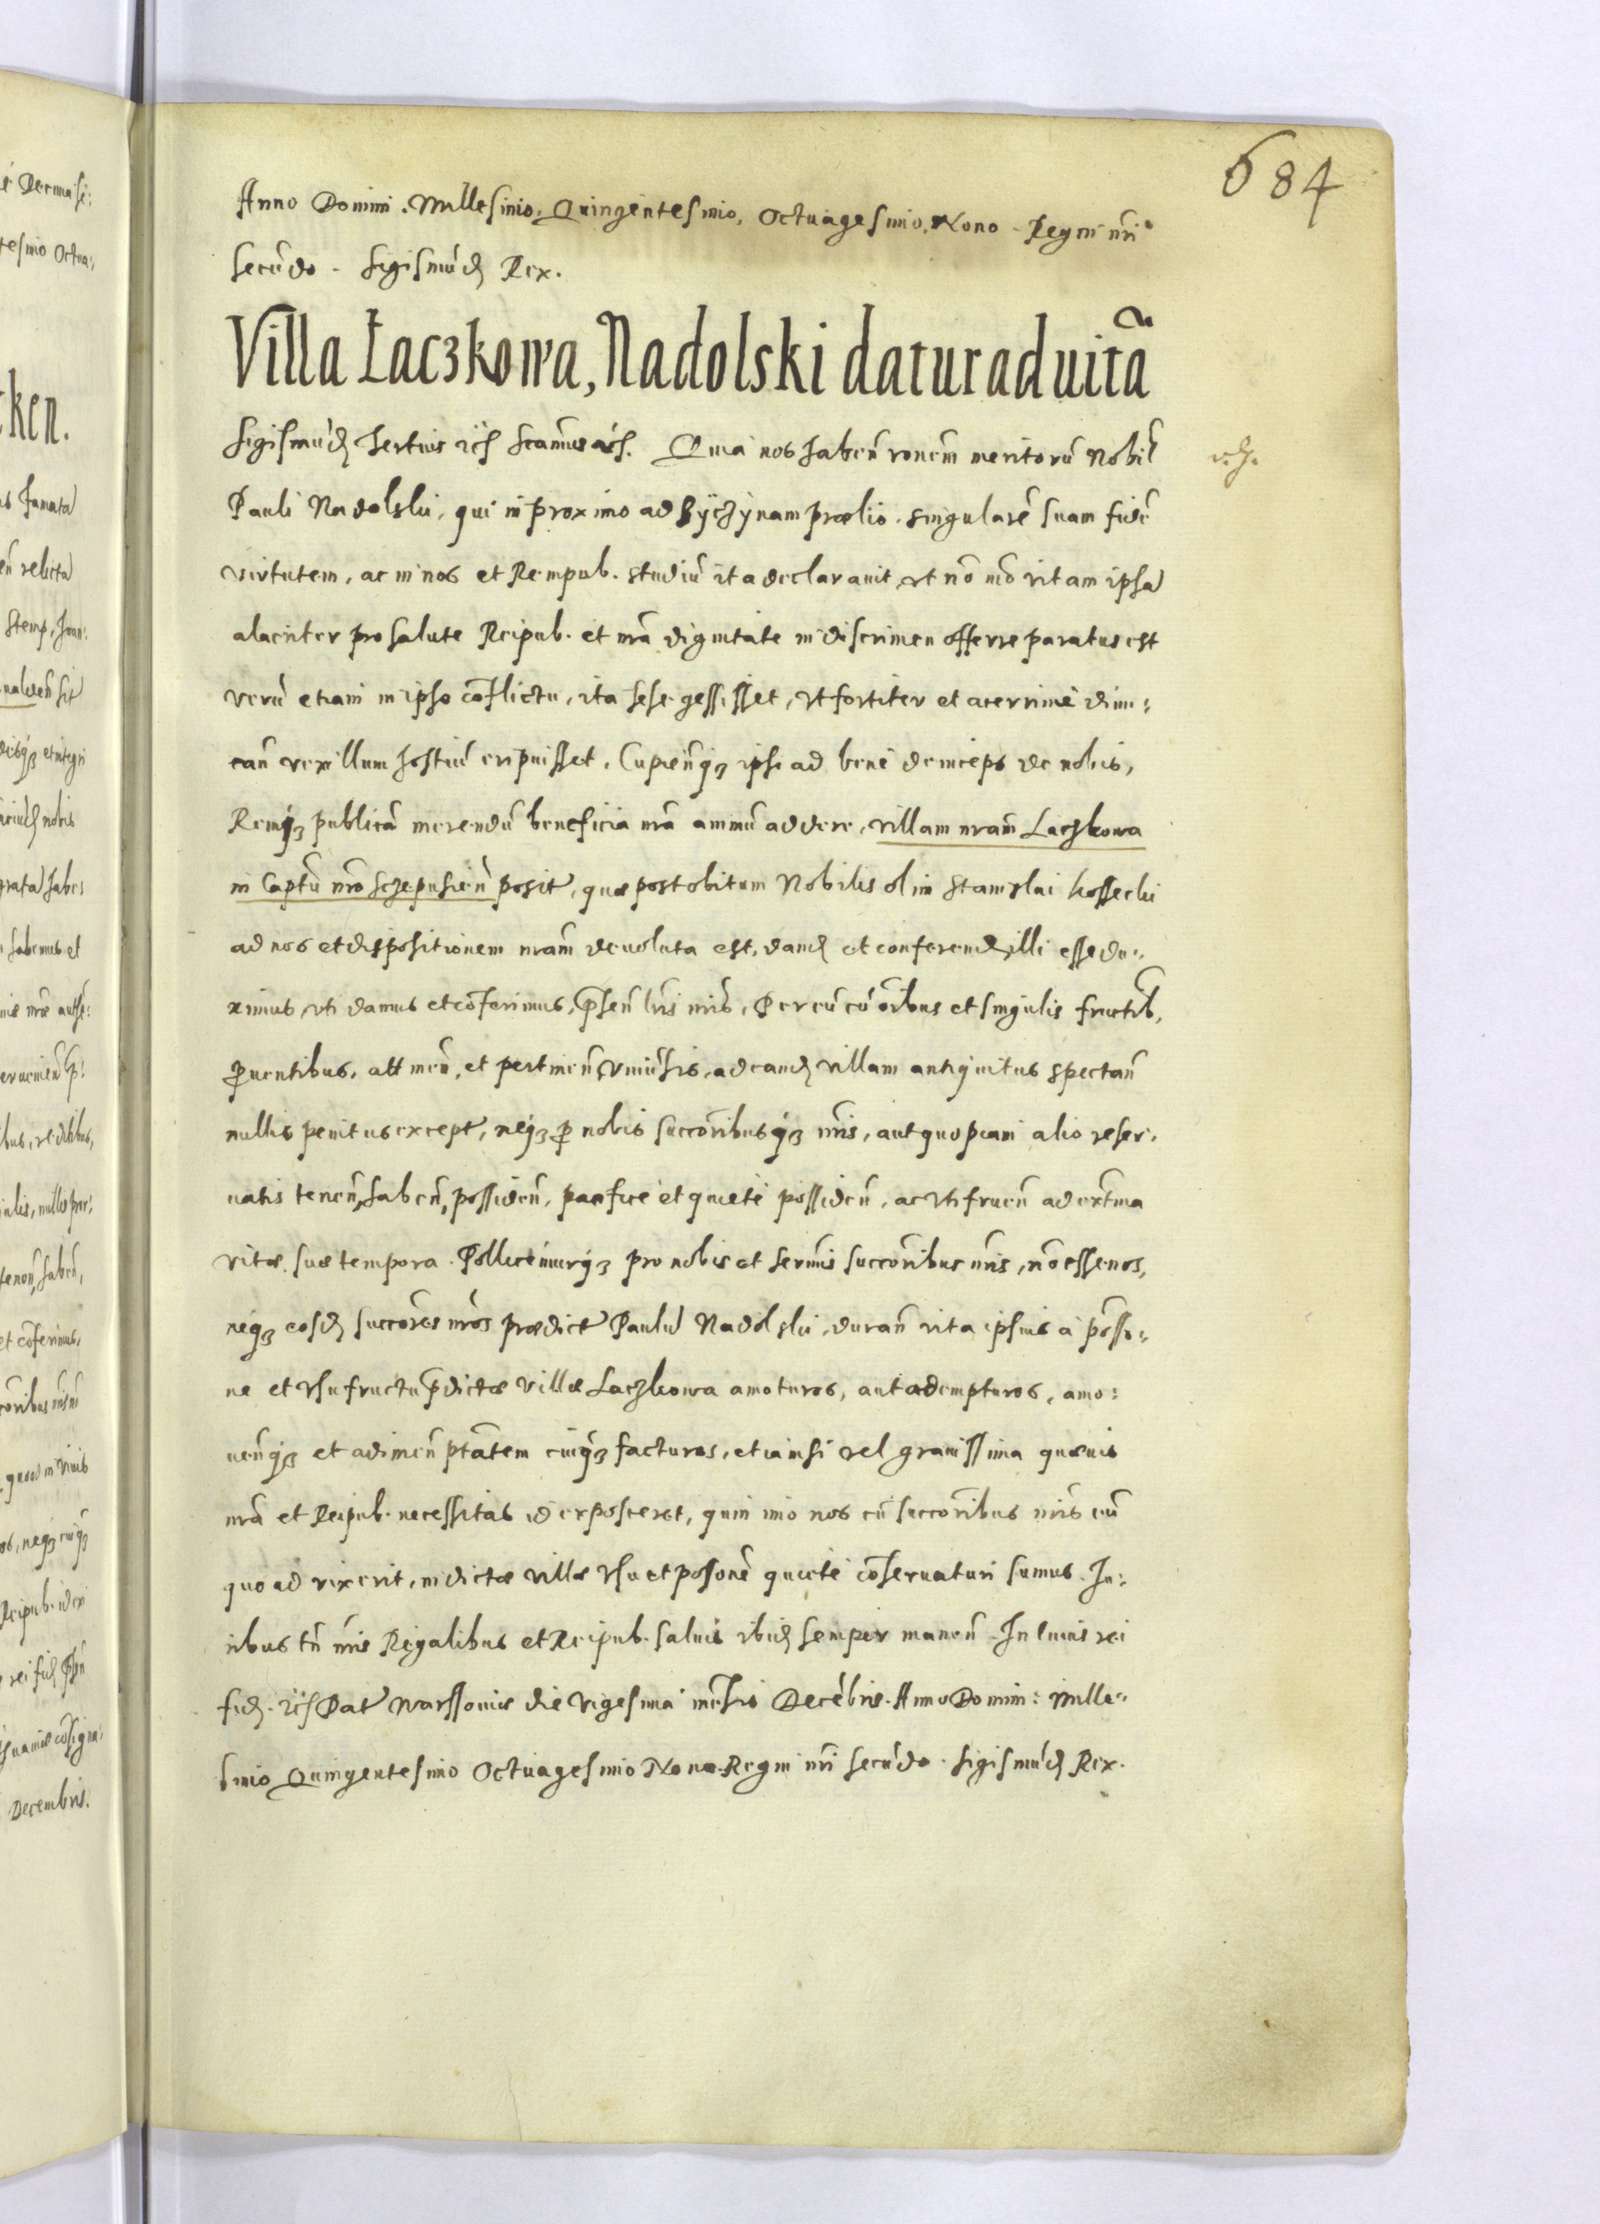 684
Anno Domini. Millesimo, Quingentesimo, Octuagesimo, Nono. Regni nr̃i
secũdo. Sigismũdꝫ Rex.
Villa Łaczkowa, Nadolski datur ad uitã
Sigismũdꝫ Tertius etc̃ Quia nos habeñ ronem meritorũ Nobil̃
Pauli Nadolski, qui in proximo ad Byczynam prælio. singularẽ suam fidẽ
virtutem, ac in nos et Rempub. studiũ ita declarauit, vt nõ mõ vitam ipsã
alacriter pro salute Reipub. et nrã dignitate in discrimen offerre paratus est
verũ etiam in ipso cõflictu, ita sese gessisset, vt fortiter et acerrimè dimi:
cañ vexillum hostiũ eripuisset. Cupieñqꝫ ipsi ad benè deinceps de nobis,
Remqꝫ publicã merendũ beneficia nrã animũ addere, villam nram̃ Laczkowa
in Captũ nrõ Sczepusieñ posit, quæ post obitum Nobilis olim Stanislai Kossecki
ad nos et dispositionem nram̃ deuoluta est, dandꝫ et conferendꝫ illi esse du:
ximus, vti damus et cõferimus, p̃señ lr̃is nr̃is, Per eũ cũ oĩbus et singulis fructib̃,
ꝓuentibus, attineñ, et pertineñ, vniuersis, ad eandꝫ villam antiquitus spectañ
nullis penitus except, neqꝫ ꝓ nobis succoribusqꝫ nr̃is, aut quopiam alio reser:
uatis teneñ, habeñ, possideñ, pacificè et quietè possideñ, ac vtifrueñ ad extrẽa
vitæ suæ tempora. Pollicemurqꝫ pro nobis et Sermis succoribus nr̃is, nõ esse nos,
neqꝫ eosdꝫ succores nrõs prædict Paulũ Nadolski, durañ vita ipsius à posso:
ne et vsufructu p̃dictæ villæ Laczkowa amoturos, aut adempturos, amo:
ueñqꝫ et adimeñ ptãtem cuiqꝫ facturos, etiamsi vel grauissima quæuis
nrã et Reipub. necessitas id exposceret, quin imo nos cũ succoribus nr̃is eũ
quoad vixerit, in dictæ villæ vsu et possonẽ quietè cõseruaturi sumus. Iu:
ribus tñ nr̃is Regalibus et Reipub. saluis ibidꝫ semper maneñ. In cuius rei
fidꝫ. etc̃ Dat Warssouiæ die vigesima meñsis Decẽbris. Anno Domini: Mille:
simo Quingentesimo Octuagesimo Nono. Regni nr̃i secũdo. Sigismũdꝫ Rex.